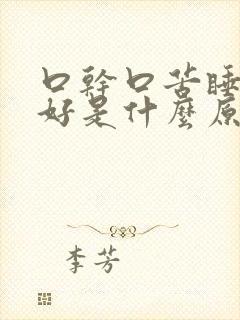 口幹口苦睡
好是什麼原
李芳